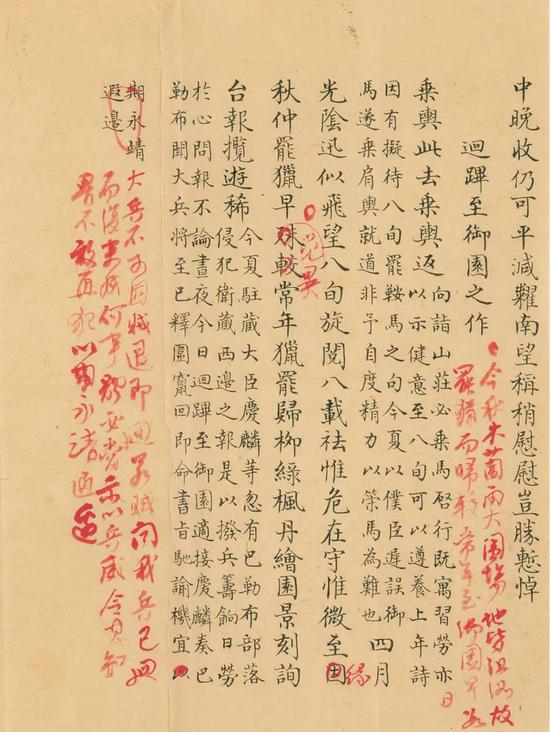 中晚收仍可平減糶南望稱稍慰慰豈勝慙悼
迴蹕至御園之作
今秋木蘭雨大圍場地皆沮洳故
罷獵而歸較常年至御園早
日
乘輿此去乘輿返
向詣山莊必乘馬啓行既寓習勞亦
以示健意至八旬可以遵養上年詩
因有擬待八旬罷鞍馬之句今夏以僕臣遲誤御
馬遂乘肩輿就道非予自度精力以策馬為難也
四月
光陰迅似飛望八旬旋閱八載祛惟危在守惟微至因
緣
秋仲罷獵早殊較常年獵罷歸柳綠楓丹繪園景刻詢
異
台報攬遊稀
今夏駐藏大臣慶麟等忽有巴勒布部落
侵犯衛藏西邊之報是以撥兵籌餉日勞
於心問報不論晝夜今日迴蹕至御園適接慶麟奏巴
勒布聞大兵將至已釋圍竄回即命書旨馳諭機宜以
期永靖
遐邊
大兵不可因賊退即迴若賊聞我兵已迴
而復來成何事體必當示以兵威令其知
畏不敢再犯以期永靖遐邊